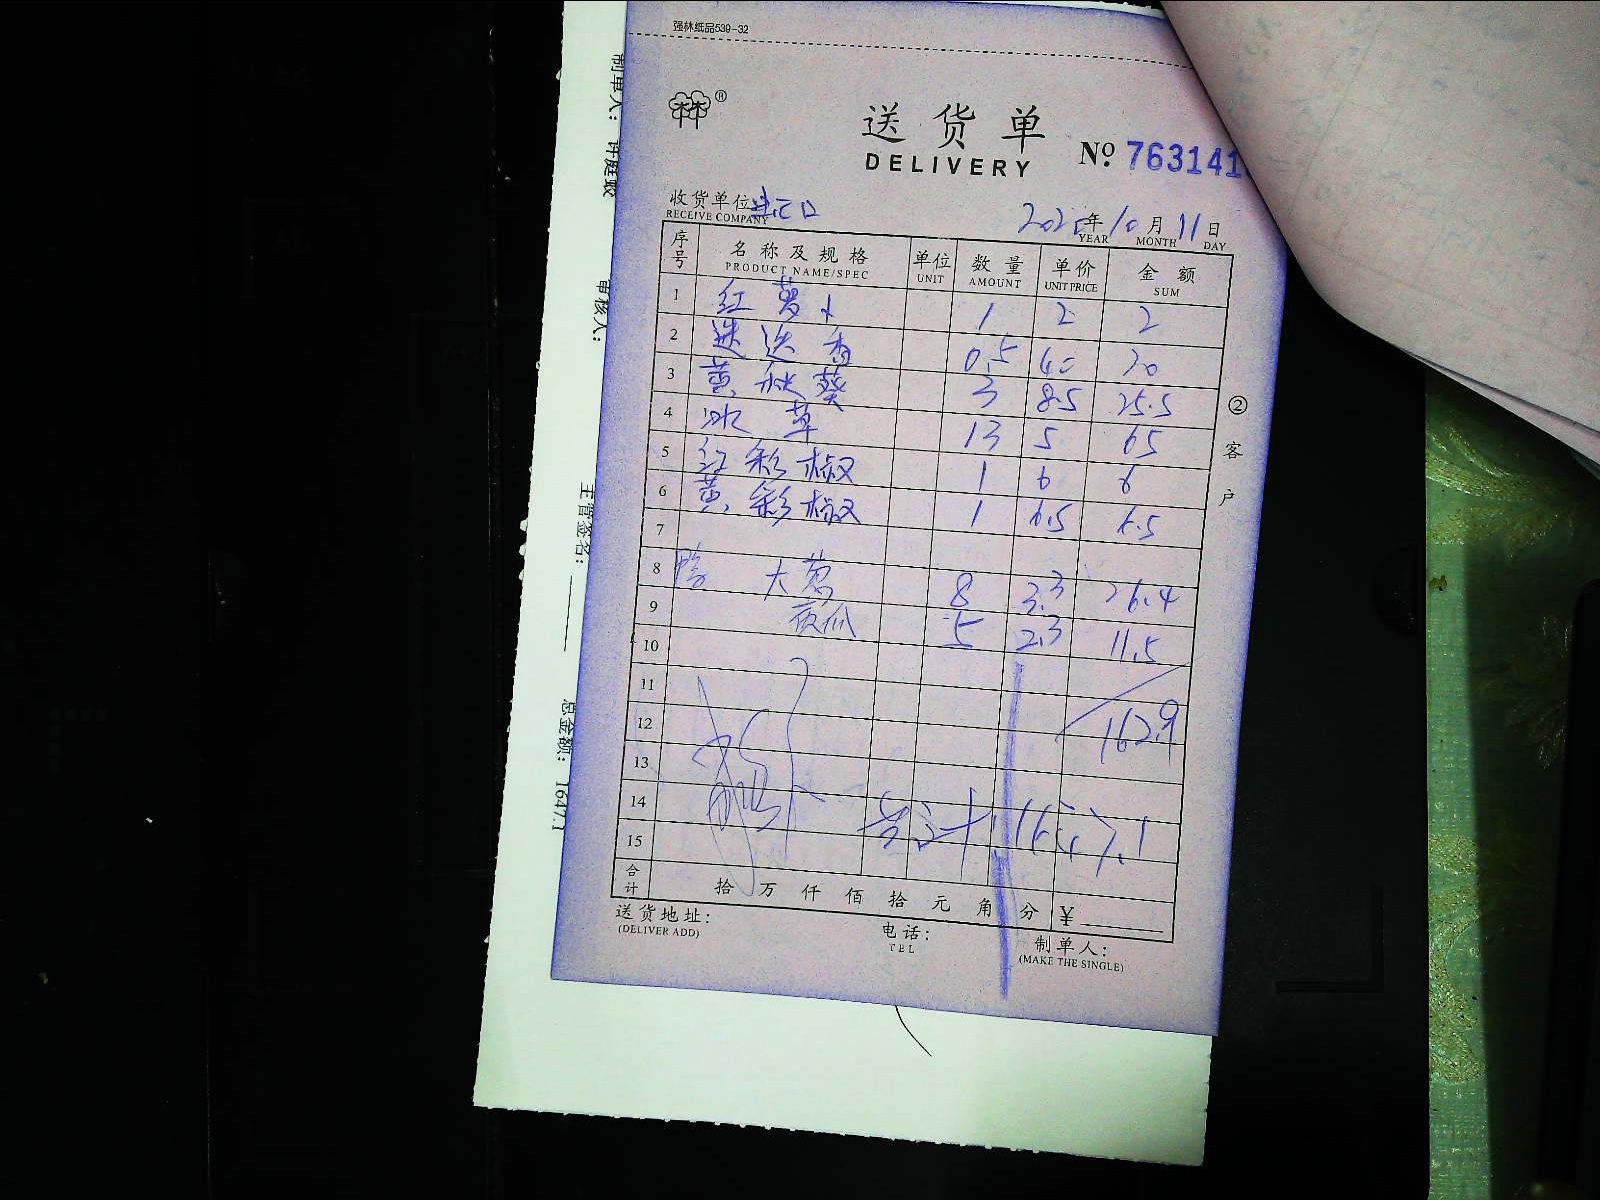 强林纸品539-32
®
送货单
DELIVERY
№ 763141
收货单位 进江口
RECEIVE COMPANY
2025年10月11日
YEAR MONTH DAY
序号 名称及规格 单位 数量 单价 金额
PRODUCT NAME/SPEC UNIT AMOUNT UNIT PRICE SUM
1 红萝卜 1 2 2
2 迷迭香 0.5 40 20
3 黄秋葵 3 8.5 25.5
4 冰草 13 5 65
5 红彩椒 1 6 6
6 黄彩椒 1 6.5 6.5
7
8 大葱 8 3.3 26.4
9 夜瓜 5 2.3 11.5
10
11
12 162.9
13
14 共计 1647.1
15
合计 拾 万 仟 佰 拾 元 角 分 ¥
送货地址:
(DELIVER ADD)
电话:
TEL
制单人:
(MAKE THE SINGLE)
②客户
制单人: 许庭蛟
审核人:
主管签名:
总金额: 1647.1